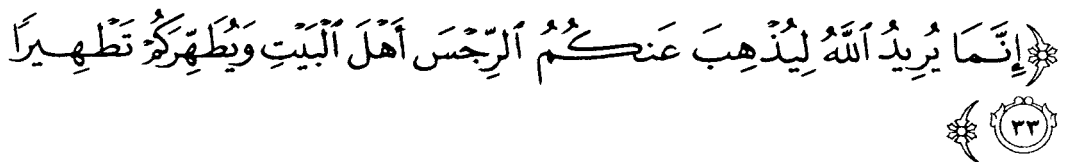 ﴿إِنَّمَا يُرِيدُ ٱللَّهُ لِيُذۡهِبَ عَنكُمُ ٱلرِّجۡسَ أَهۡلَ ٱلۡبَيۡتِ وَيُطَهِّرَكُمۡ تَطۡهِيرٗا
٣٣﴾